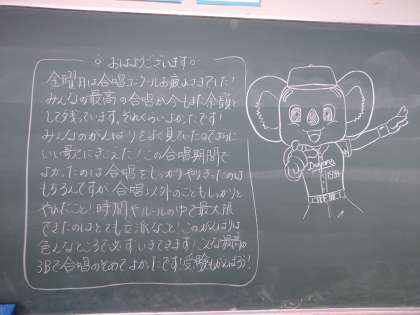 おはようございます
金曜日は合唱コンクールお疲れさまでした!
みんなの最高の合唱が今もまだ余韻と
して残っています。それくらいよかったです!
みんなのがんばりをよく見ていたのでさらに
いい歌にきこえた!この合唱期間で
よかったのは合唱をしっかりやりきったのは
もちろんですが、合唱以外のこともしっかりと
やれたこと!時間やルールの中で最大限
できたのはとても立派なこと!このがんばりは
色んなところで必ずいきてきます!こんな最高の
3Bで合唱のぞめてよかったです!受験もがんばろう!
Dragons